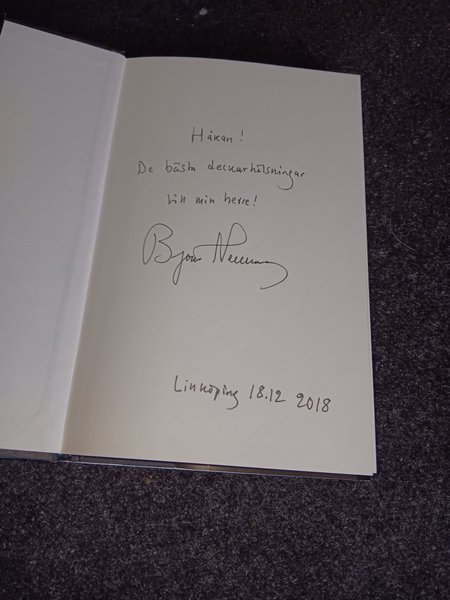 Håkan!
De bästa deckarhälsningar
till min herre!
Björn
Linköping 18.12 2018